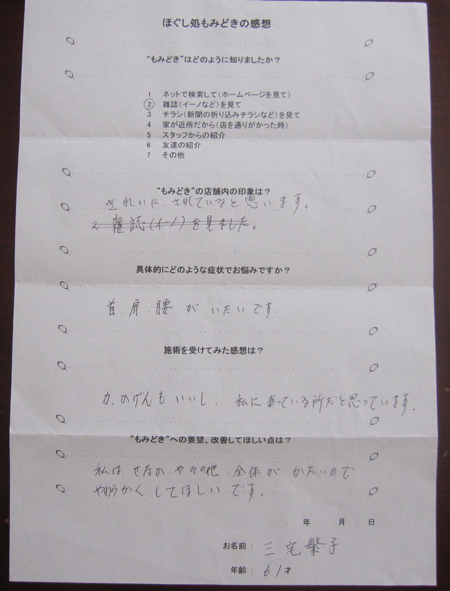 ほぐし処もみどきの感想
“もみどき”はどのように知りましたか？
1 ネットで検索して（ホームページを見て）
2 雑誌（イーノなど）を見て
3 チラシ（新聞の折り込みチラシなど）を見て
4 家が近所だから（店を通りがかった時）
5 スタッフからの紹介
6 友達の紹介
7 その他
“もみどき”の店舗内の印象は？
きれいに、されていると思います。
2 雑誌（イーノ）を見ました。
具体的にどのような症状でお悩みですか？
首、肩、腰が いたいです。
施術を受けてみた感想は？
力、かげんも いいし、私にあっている所だと思っています。
“もみどき”への要望、改善してほしい点は？
私は、せなか やその他、全体が かたいので
やわらかく してほしいです。
年 月 日
お名前： 三宅繁子
年齢： 61才